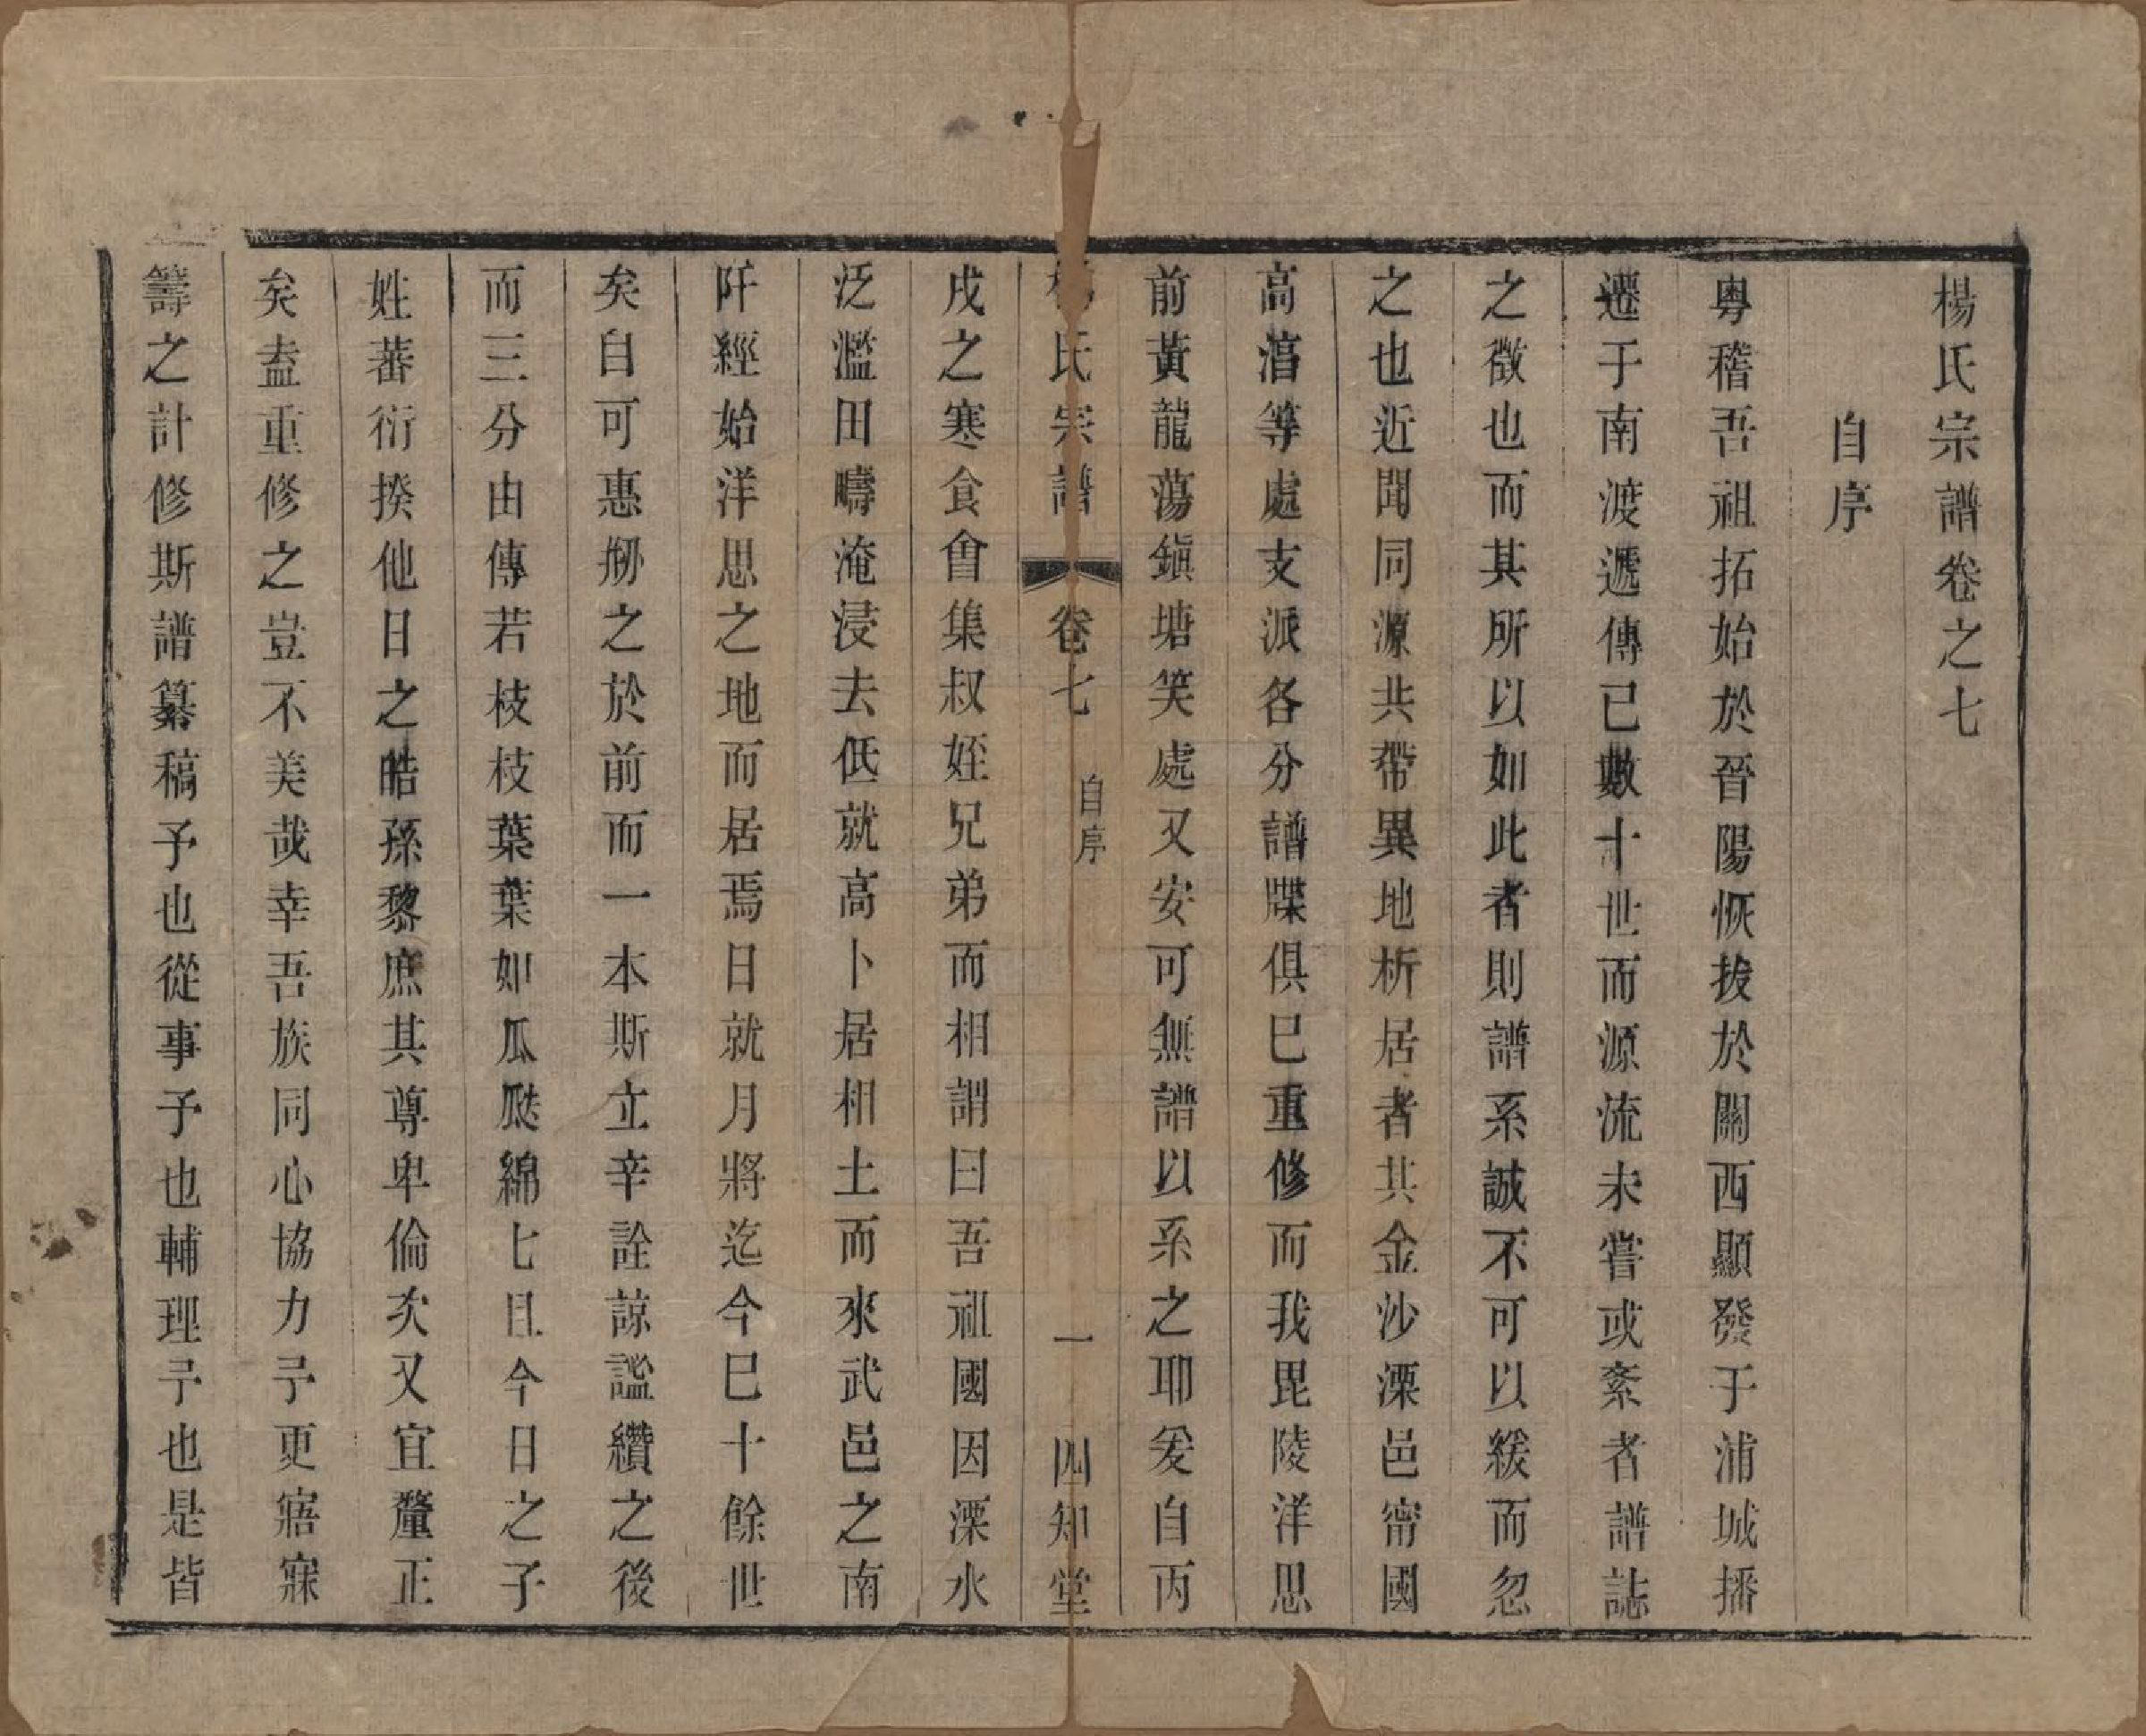 楊氏宗譜卷之七
自序
粵稽吾祖拓始於晉陽恢拔於關西顯發于浦城播
遷于南渡遞傳已數十世而源流未嘗或紊者譜誌
之徵也而其所以如此者則譜系誠不可以緩而忽
之也近聞同源共帶異地析居者共金沙溧邑甯國
高湻等處支派各分譜牒俱已重修而我毘陵洋思
前黃龍蕩鎭塘笑處又安可無譜以系之耶爰自丙
楊氏宗譜 卷七 自序 一 四知堂
戌之寒食會集叔姪兄弟而相謂曰吾祖國因溧水
泛濫田疇淹浸去低就高卜居相土而來武邑之南
阡經始洋思之地而居焉日就月將迄今巳十餘世
矣自可惠剏之於前而一本斯立辛詮諒謐纘之後
而三分由傳若枝枝葉葉如瓜瓞綿七且今日之子
姓蕃衍揆他日之皓孫黎庶其尊卑倫次又宜釐正
矣盍重修之豈不美哉幸吾族同心協力予更寤寐
籌之計修斯譜纂稿予也從事予也輔理予也是皆